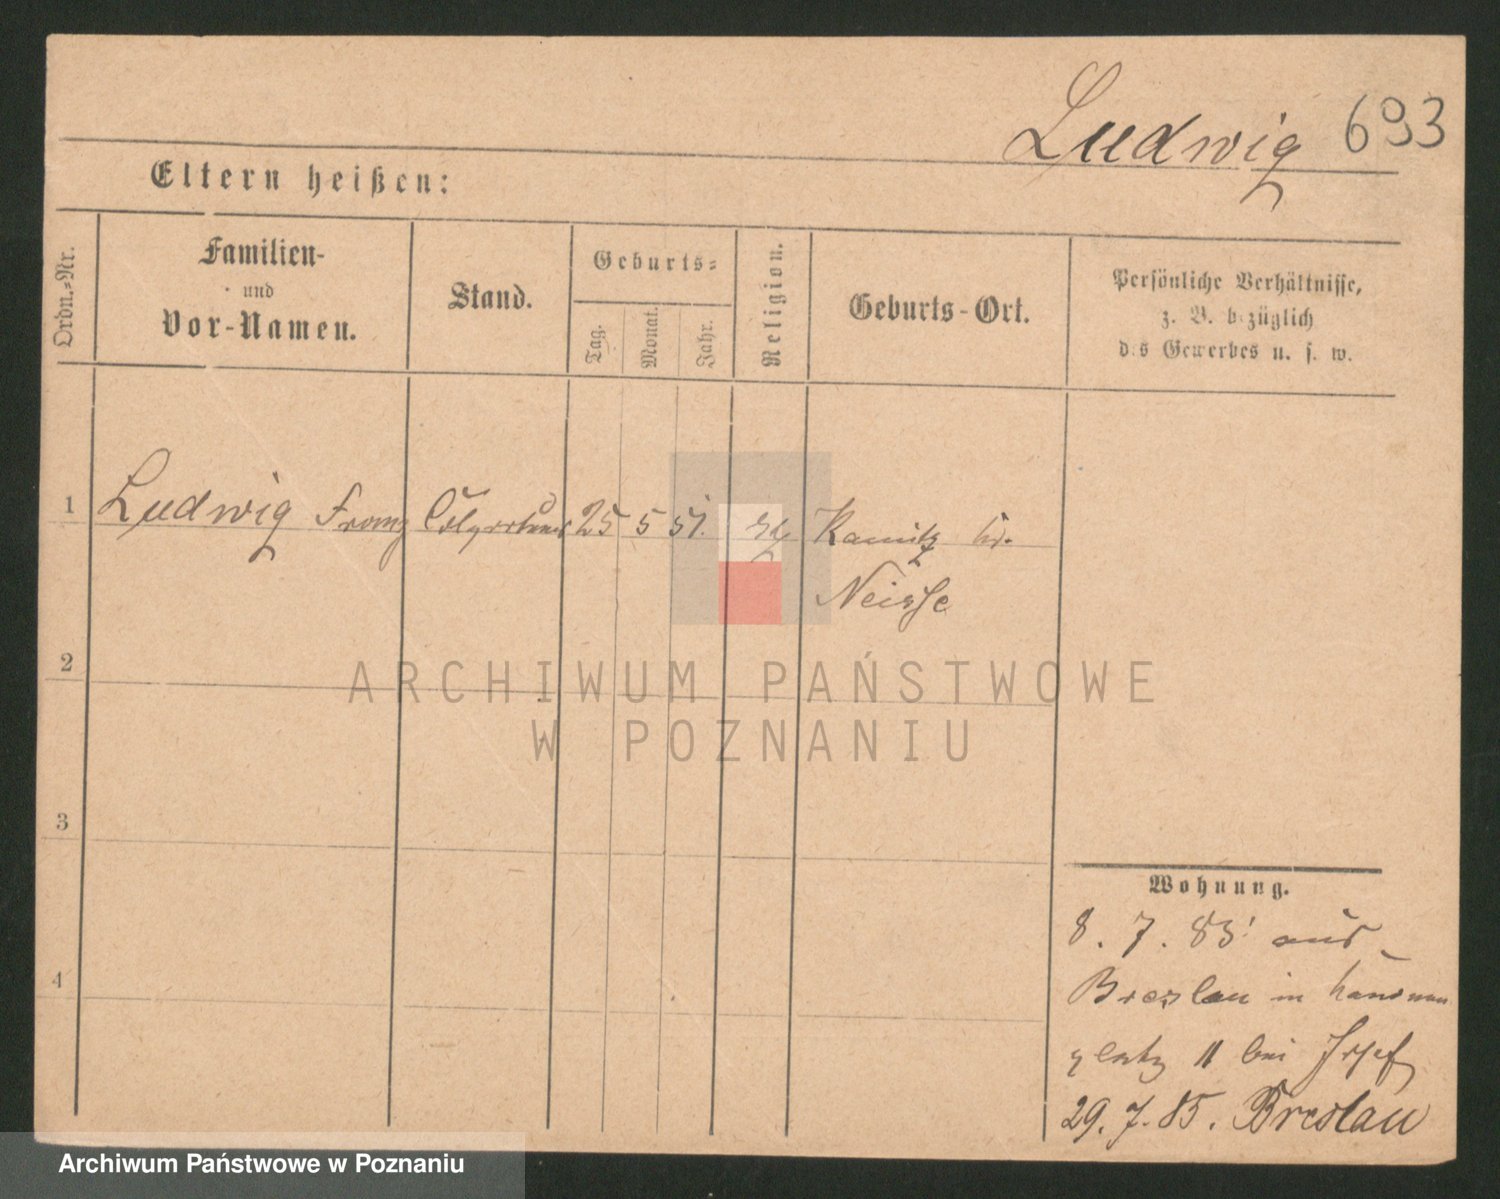 Ludwig 693
Eltern heißen:
Ordn.-Nr.
Familien-
und
Vor-Namen.
Stand.
Geburts-
Tag.
Monat.
Jahr.
Religion.
Geburts-Ort.
Persönliche Verhältnisse,
z. B. bezüglich
des Gewerbes u. s. w.
1 Ludwig Franz 25 5 51. Kamitz
Neisse
2
3
4
Wohnung.
8. 7. 85 aus
Breslau in
platz 11 bei Josef
29. 7. 85. Breslau
ARCHIWUM PAŃSTWOWE
W POZNANIU
Archiwum Państwowe w Poznaniu